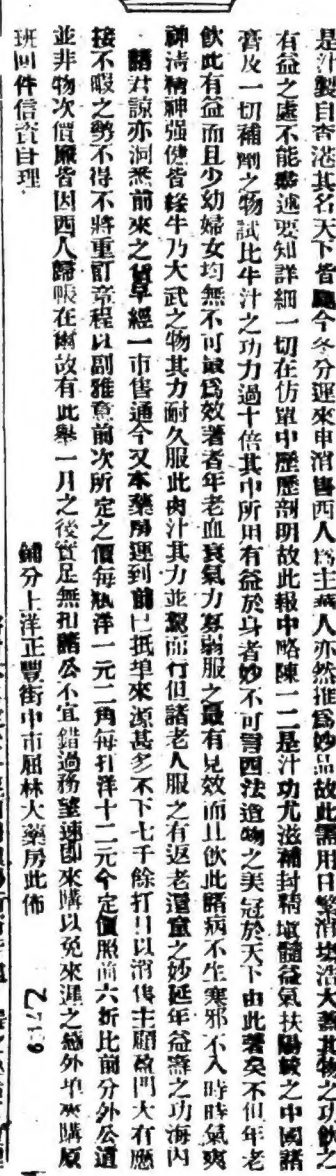 是汁製自香港其名天下皆聞今冬分運來申消售西人為主華人亦然推為妙品故此需用日繁消場浩大蓋其物之功飲之
有益之處不能盡述要知詳細一切在仿單中歷歷剖明故此報中略陳一二是汁功尤滋補封精填髓益氣扶陽較之中國諸
膏及一切補劑之物試比牛汁之功力過十倍其中所用有益於身者妙不可言西法造物之美冠於天下由此著矣不但年老
飲此有益而且少幼婦女均無不可最為效著者年老血衰氣力寡弱服之最有見效而且飲此諸病不生寒邪不入時時氣爽
神清精神強健皆緣牛乃大武之物其力耐久服此肉汁其力並駕而行但諸老人服之有返老還童之妙延年益壽之功海內
諸君諒亦洞悉前來之貨早經一市售通今又本藥房運到前已抵埠來源甚多不下七千餘打日以消售主顧盈門大有應
接不暇之勢不得不將重訂章程以副雅意前次所定之價每瓶洋一元二角每打洋十二元今定價照前六折比前分外公道
並非物次價廉皆因西人歸帳在爾故有此舉一月之後實足無扣諸公不宜錯過務望速即來購以免來遲之憾外埠來購原
班回件信資自理
鋪分上洋正豐街中市屈林大藥房此佈
6172